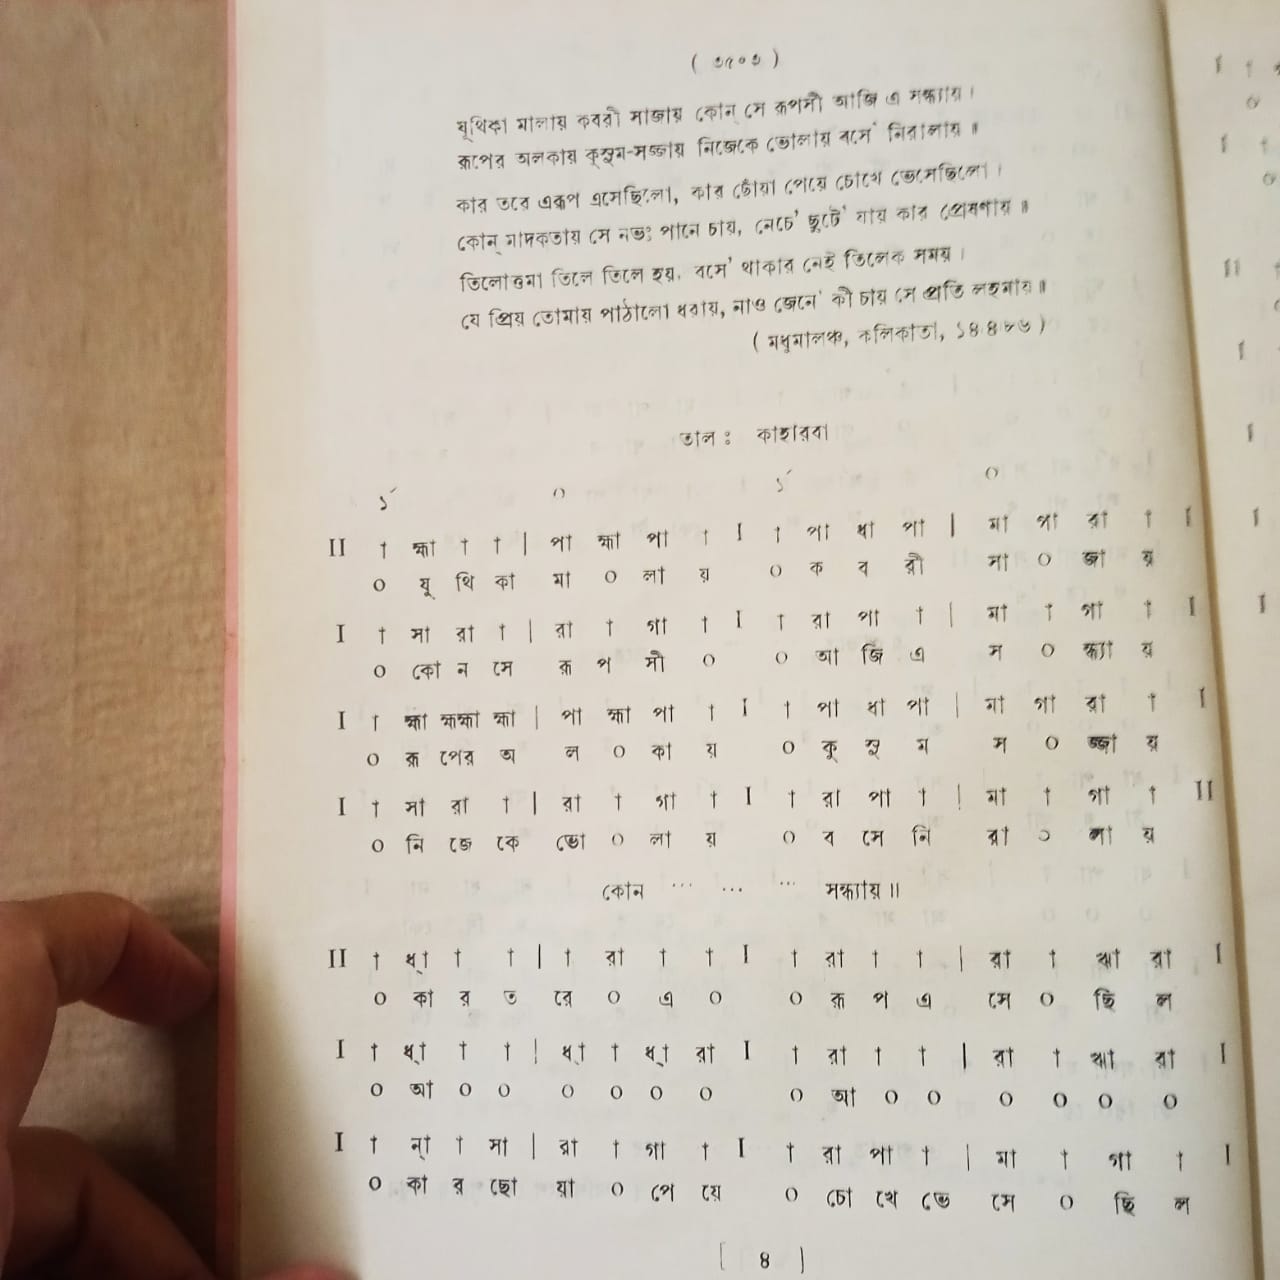 ( ৩৭০৩ )
যূথিকা মালায় কবরী সাজায় কোন্ সে রূপসী আজি এ সন্ধ্যায়।
রূপের অলকায় কুসুম-সজ্জায় নিজেকে ভোলায় বসে' নিরালায়॥
কার তরে এরূপ এসেছিলো, কার ছোঁয়া পেয়ে চোখে ভেসেছিলো।
কোন্ মাদকতায় সে নভঃ পানে চায়, নেচে' ছুটে' যায় কার প্রেষণায়॥
তিলোত্তমা তিলে তিলে হয়, বসে' থাকার নেই তিলেক সময়।
যে প্রিয় তোমায় পাঠালো ধরায়, নাও জেনে' কী চায় সে প্রতি লহমায়॥
( মধুমালঞ্চ, কলিকাতা, ১৪৪৮৬ )
তাল : কাহারবা
১´ ০ ১´ ০
II † হ্মা † † | পা হ্মা পা † I † পা ধা পা | মা পা রা † I
০ যূ থি কা মা ০ লা য় ০ ক ব রী সা ০ জা য়
I † সা রা † | রা † গা † I † রা পা † | মা † গা † I
০ কো ন সে রূ প সী ০ ০ আ জি এ স ০ ন্ধ্যা য়
I † হ্মা হ্মহ্মা হ্মা | পা হ্মা পা † I † পা ধা পা | মা গা রা † I
০ রূ পের অ ল ০ কা য় ০ কু সু ম স ০ জ্জা য়
I † সা রা † | রা † গা † I † রা পা † | মা † গা † II
০ নি জে কে ভো ০ লা য় ০ ব সে নি রা ০ লা য়
কোন ... ... ... সন্ধ্যায়॥
II † ধ্া † † | † রা † † I † রা † † | রা † ঋা রা I
০ কা র ত রে ০ এ ০ ০ রূ প এ সে ০ ছি ল
I † ধ্া † † | ধ্া † ধ্া রা I † রা † † | রা † ঋা রা I
০ আ ০ ০ ০ ০ ০ ০ ০ আ ০ ০ ০ ০ ০ ০
I † ন্া † সা | রা † গা † I † রা পা † | মা † গা † I
০ কা র ছো য়া ০ পে য়ে ০ চো খে ভে সে ০ ছি ল
[ 8 ]